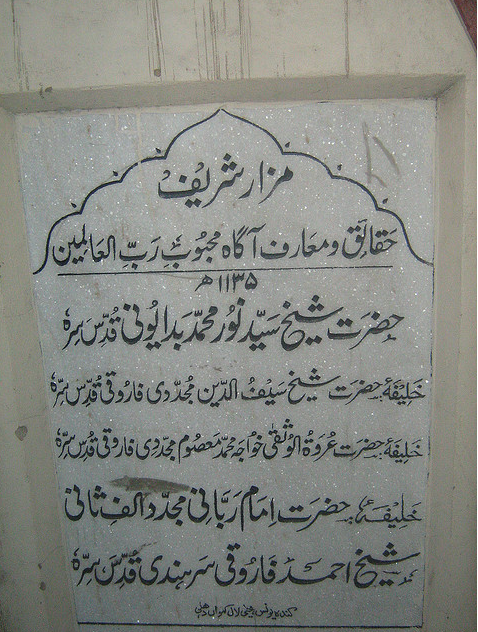 مزار شریف
حقائق و معارف آگاہ محبوبِ رَبِّ العالمین
۱۱۳۵ھ
حضرت شیخ سیّد نُور محمّد بدایُونی قُدِّسَ سِرہٗ
خلیفۂ حضرت شیخ سیفُ الدّین مُجدّدی فاروقی قُدِّسَ سِرّہٗ
خلیفۂ حضرت عُروۃُ الوُثقیٰ خواجہ محمد معصوم مجدّدی فاروقی قُدِّسَ سِرّہٗ
خلیفۂ حضرت اِمام رَبّانی مجدّد الف ثانی
شیخ احمد فاروقی سرہندی قُدِّسَ سِرّہٗ
لال کنواں دہلی